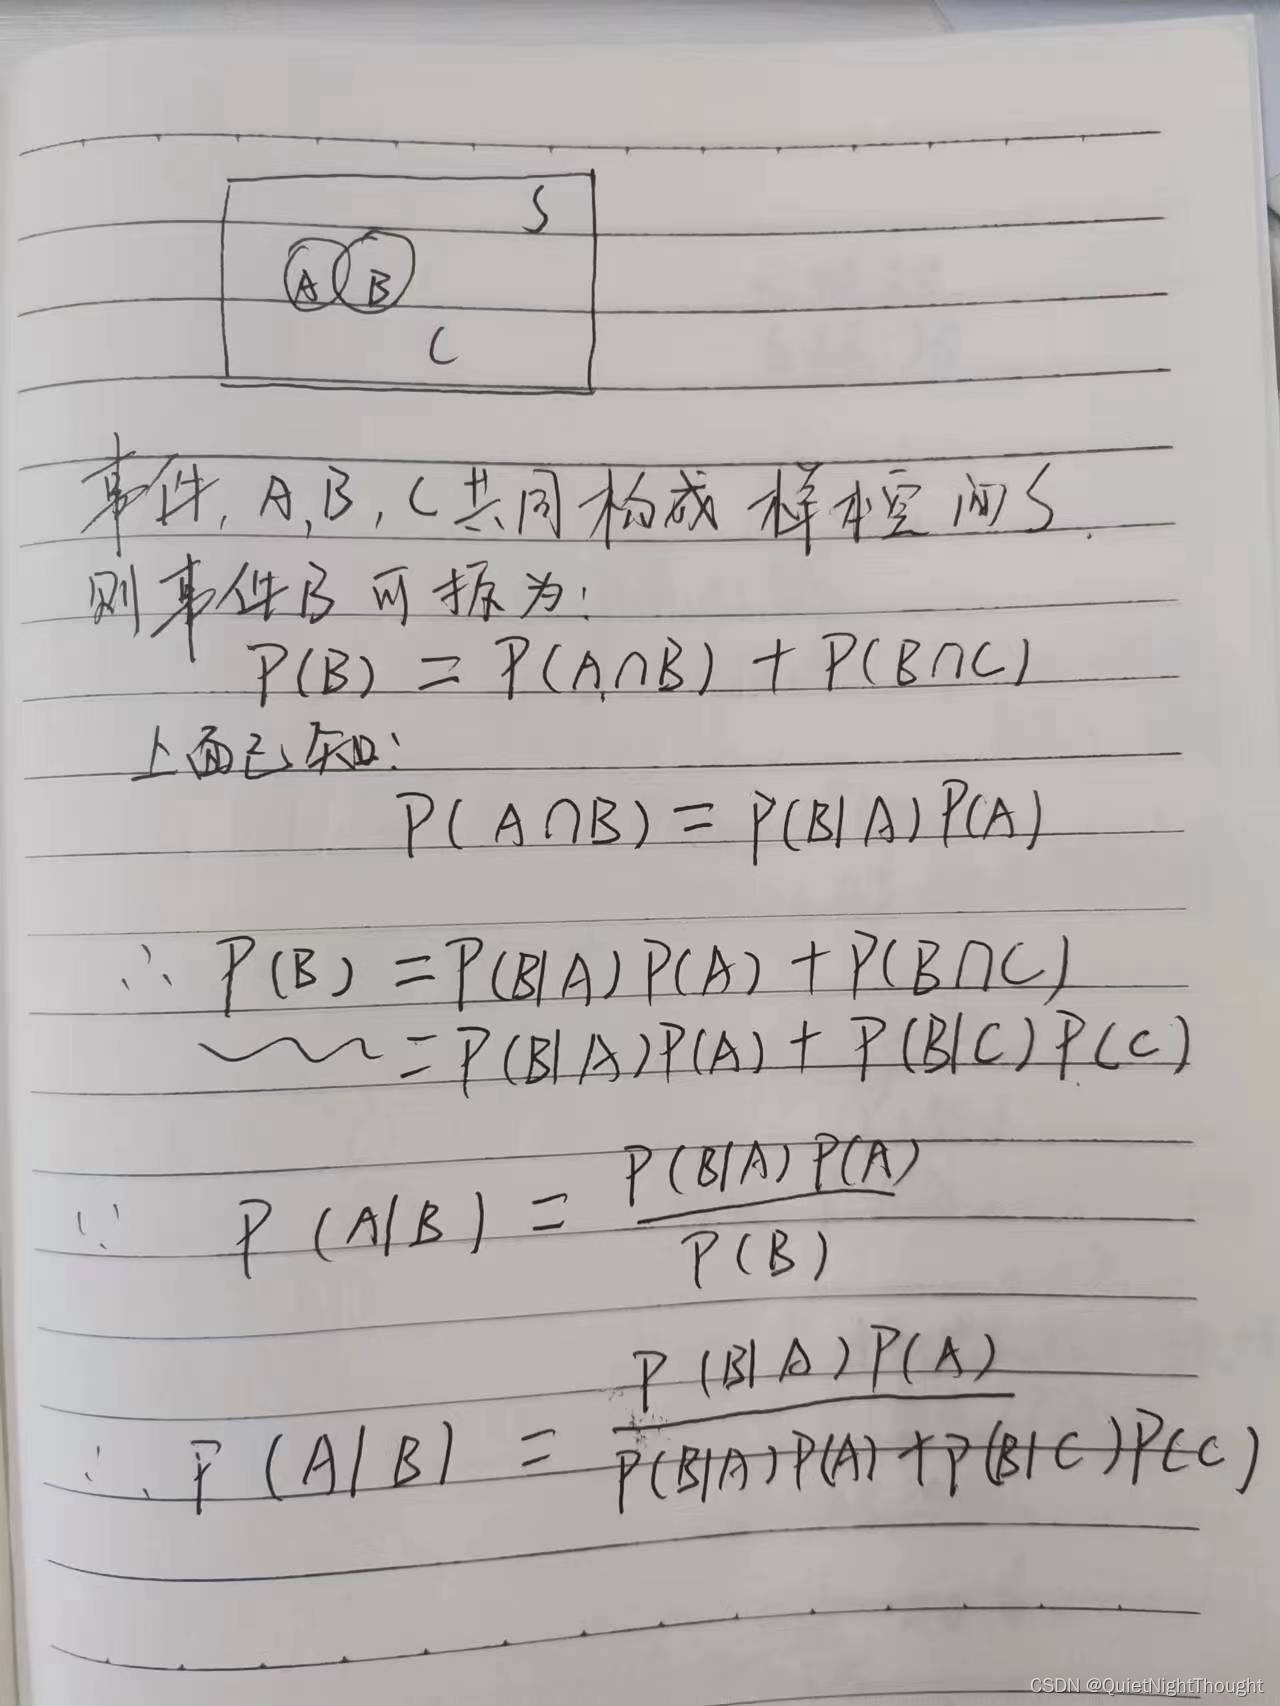 S
A B
C
事件，A，B，C共同构成样本空间S.
则事件B可拆为：
P(B) = P(A∩B) + P(B∩C)
上面已知：
P(A∩B) = P(B|A)P(A)
∴ P(B) = P(B|A)P(A) + P(B∩C)
= P(B|A)P(A) + P(B|C)P(C)
∵ P(A|B) = P(B|A)P(A) / P(B)
∴ P(A|B) = P(B|A)P(A) / P(B|A)P(A) + P(B|C)P(C)
CSDN @QuietNightThought